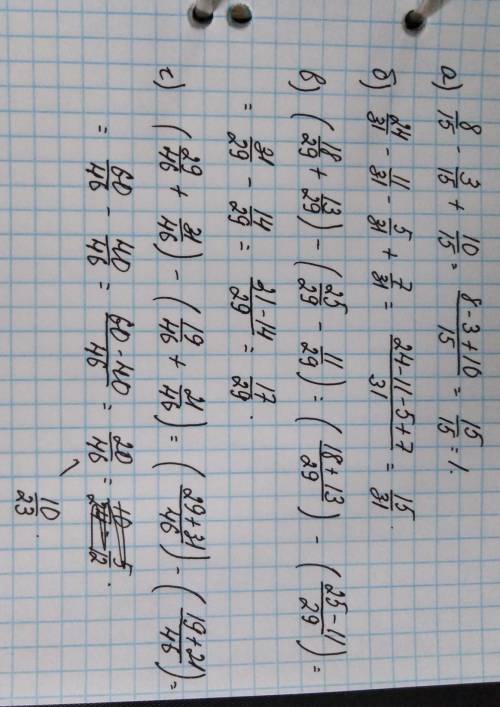 а) 8/15 - 3/15 + 10/15 = (8-3+10)/15 = 15/15 = 1.
б) 24/31 - 11/31 - 5/31 + 7/31 = (24-11-5+7)/31 = 15/31.
в) (18/29 + 13/29) - (25/29 - 11/29) = ((18+13)/29) - ((25-11)/29) =
= 31/29 - 14/29 = (31-14)/29 = 17/29.
г) (29/46 + 31/46) - (19/46 + 21/46) = ((29+31)/46) - ((19+21)/46) =
= 60/46 - 40/46 = (60-40)/46 = 20/46 =
10/23.